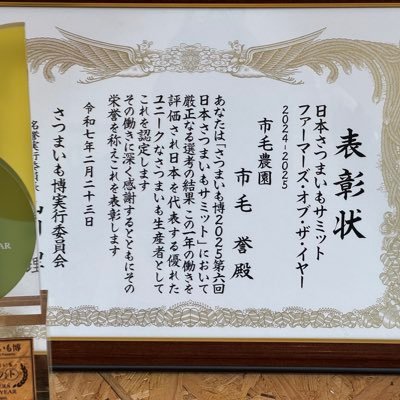 表彰状
日本さつまいもサミット
ファーマーズ・オブ・ザ・イヤー
2024-2025
市毛農園
市毛 誉 殿
あなたは「さつまいも博2025第六回
日本さつまいもサミット」において
厳正なる選考の結果 この一年の働きを
評価され日本を代表する優れた
ユニークなさつまいも生産者として
これを認定します
その働きに深く感謝するとともにその
栄誉を称えこれを表彰します
令和七年二月二十三日
さつまいも博実行委員会
AR
いも博
YEAR